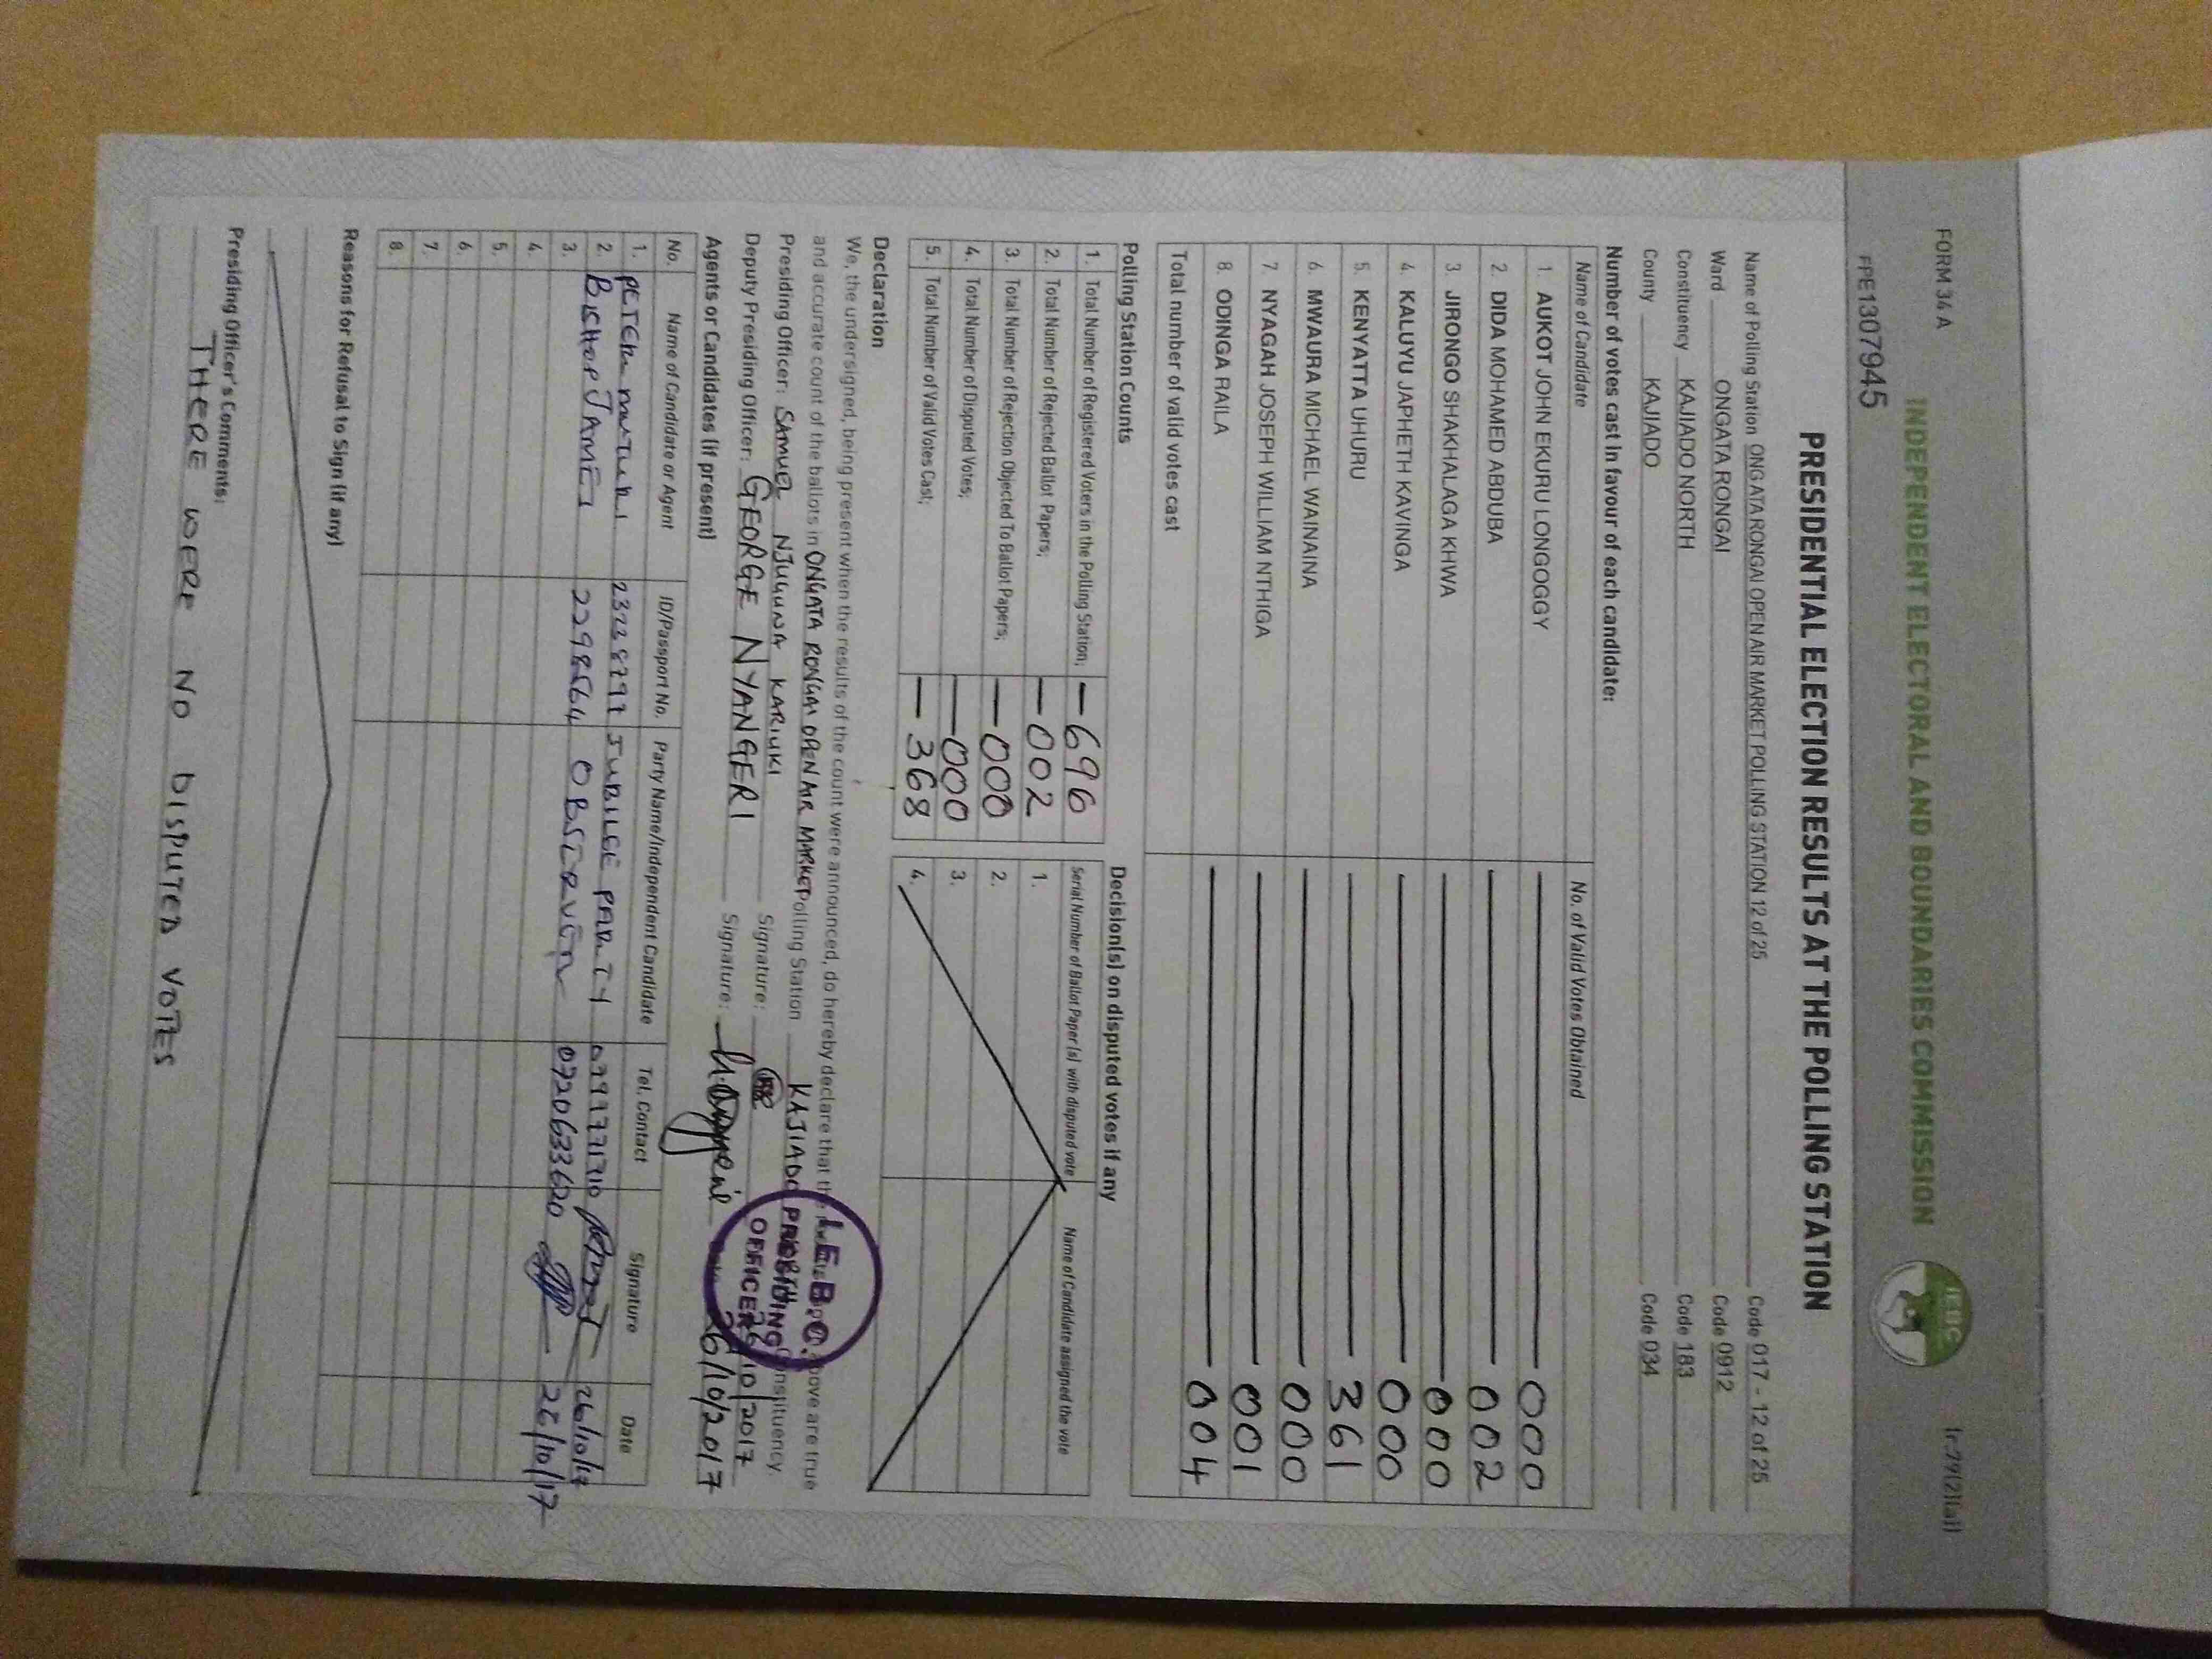 FORM 34 A
INDEPENDENT ELECTORAL AND BOUNDARIES COMMISSION
IEBC
(r.79(2)(a))
FPE1307945
PRESIDENTIAL ELECTION RESULTS AT THE POLLING STATION
Name of Polling Station ONGATA RONGAI OPEN AIR MARKET POLLING STATION 12 of 25 Code 017 - 12 of 25
Ward ONGATA RONGAI Code 0912
Constituency KAJIADO NORTH Code 183
County KAJIADO Code 034
Number of votes cast in favour of each candidate:
Name of Candidate No. of Valid Votes Obtained
1. AUKOT JOHN EKURU LONGOGGY 000
2. DIDA MOHAMED ABDUBA 002
3. JIRONGO SHAKHALAGA KHWA 000
4. KALUYU JAPHETH KAVINGA 000
5. KENYATTA UHURU 361
6. MWAURA MICHAEL WAINAINA 000
7. NYAGAH JOSEPH WILLIAM NTHIGA 001
8. ODINGA RAILA 004
Total number of valid votes cast
Polling Station Counts
1. Total Number of Registered Voters in the Polling Station; - 696
2. Total Number of Rejected Ballot Papers; - 002
3 Total Number of Rejection Objected To Ballot Papers; - 000
4. Total Number of Disputed Votes; - 000
5. Total Number of Valid Votes Cast; - 368
Decision(s) on disputed votes if any
Serial Number of Ballot Paper (s) with disputed vote Name of Candidate assigned the vote
1.
2.
3.
4.
Declaration
We, the undersigned, being present when the results of the count were announced, do hereby declare that the above are true
and accurate count of the ballots in ONGATA RONGAI OPEN AIR MARKET Polling Station KAJIADO NORTH Constituency.
Presiding Officer: SAMUEL NJUGUNA KARIUKI Signature: 26/10/2017
Deputy Presiding Officer: GEORGE NYANGERI Signature: Date 26/10/2017
I.E.B.C.
PRESIDING
OFFICER
Agents or Candidates (if present)
No. Name of Candidate or Agent ID/Passport No. Party Name/Independent Candidate Tel. Contact Signature Date
1. PETER JUBILEE PARTY 26/10/17
2. BISHOP JAMES 2298564 OBSERVER 0720633620 26/10/17
3.
4.
5.
6.
7.
8.
Reasons for Refusal to Sign (if any)
Presiding Officer's Comments:
THERE WERE NO DISPUTED VOTES